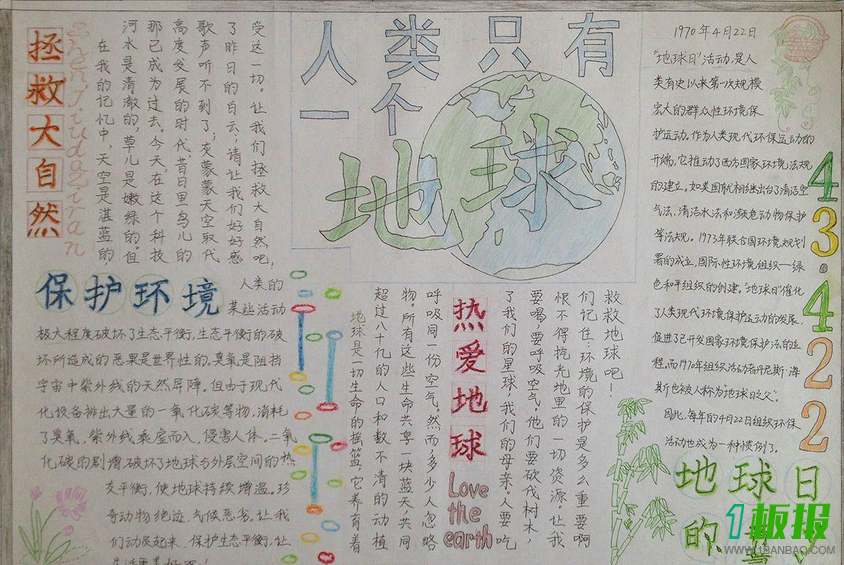 人类只有
一个
地球
拯救大自然
ZhenJiudaziran
在我的记忆中，天空是湛蓝的
河水是清澈的，草儿是嫩绿的。但
那已成为过去。今天，在这个科技
高度发展的时代，昔日里鸟儿的
歌声听不到了；灰蒙蒙天空取代
了昨日的白云；请让我们好好感
受这一切。让我们拯救大自然吧，
保护环境
人类的
某些活动
极大程度破坏了生态平衡，生态平衡的破
坏所造成的恶果是世界性的。臭氧是阻挡
宇宙中紫外线的天然屏障。但由于现代
化设备排出大量的一氧化碳等物，消耗
了臭氧，紫外线乘虚而入，侵害人体，二氧
化碳的剧增，破坏了地球与外层空间的热
支平衡，使地球持续增温。珍
奇动物绝迹，气候恶劣。让我
们动员起来，保护生态平衡，让
生活更美好吧！
热爱地球
Love
the
earth
地球是一切生命的摇篮，它养育着
超过八十亿的人口和数不清的动植
物，所有这些生命共享一块蓝天，共同
呼吸同一份空气。然而，多少人忽略
了我们的星球，我们的母亲。人要吃
要喝，要呼吸空气，他们要砍伐树木，
恨不得挖光地里的一切资源。让我
们记住：环境的保护是多么重要啊
救救地球吧！
1970年4月22日
“地球日”活动，是人
类有史以来第一次规模
宏大的群众性环境保
护运动。作为人类现代环保运动的
开端，它推动了西方国家环境法规
的建立，如美国就相继出台了清洁空
气法、清洁水法和濒危动物保护
等法规。1973年联合国环境规划
署的成立，国际性环境组织——绿
色和平组织的创建，“地球日”催化
了人类现代环境保护运动的发展，
促进了已开发国家环境保护法的进
程。而1970年组织活动者
斯也被人称为“地球日之父”。
因此，每年的4月22日组织环保
活动也成为一种惯例了。
43·422
地球日
的
1板报
WWW.1BANBAO.COM